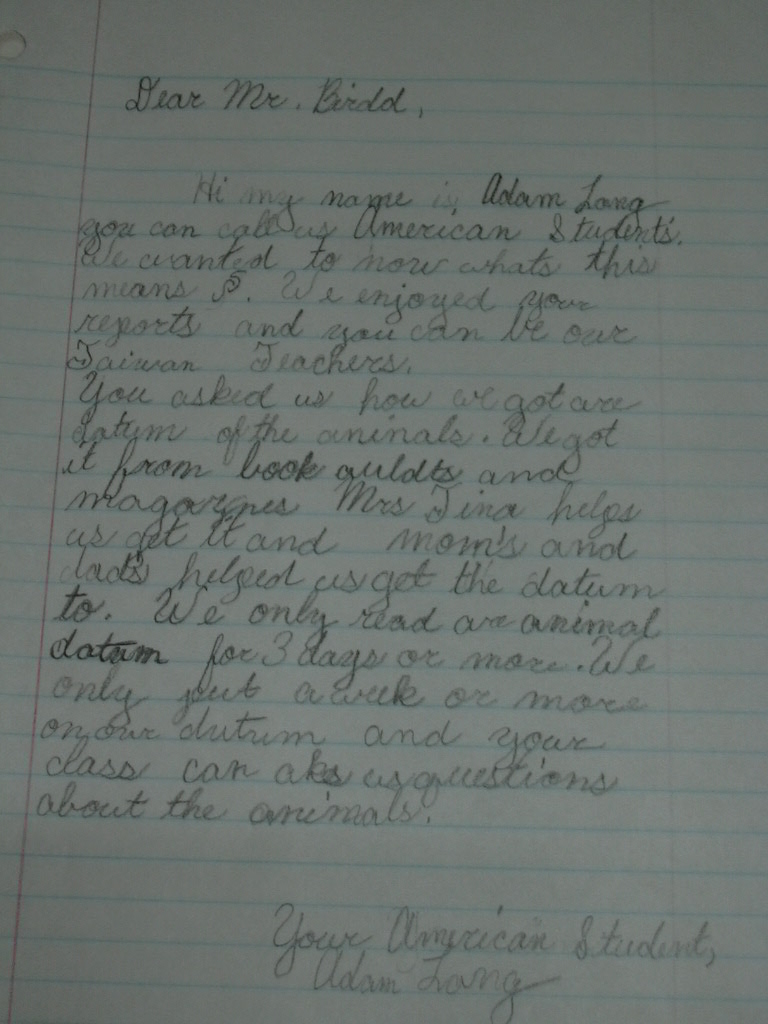 Dear Mr. Birdd,
Hi my name is Adam Lang
you can call us American Students.
We wanted to now whats this
means . We enjoyed your
reports and you can be our
Taiwan Teachers.
You asked us how we got are
datum of the aninals. We got
it from book auldts and
magazines Mrs Tina helps
us get it and mom's and
dad's helped us get the datum
to. We only read are animal
datum for 3 days or more. We
only put a week or more
on our dutum and your
class can aks us questions
about the animals.
Your American Student,
Adam Lang